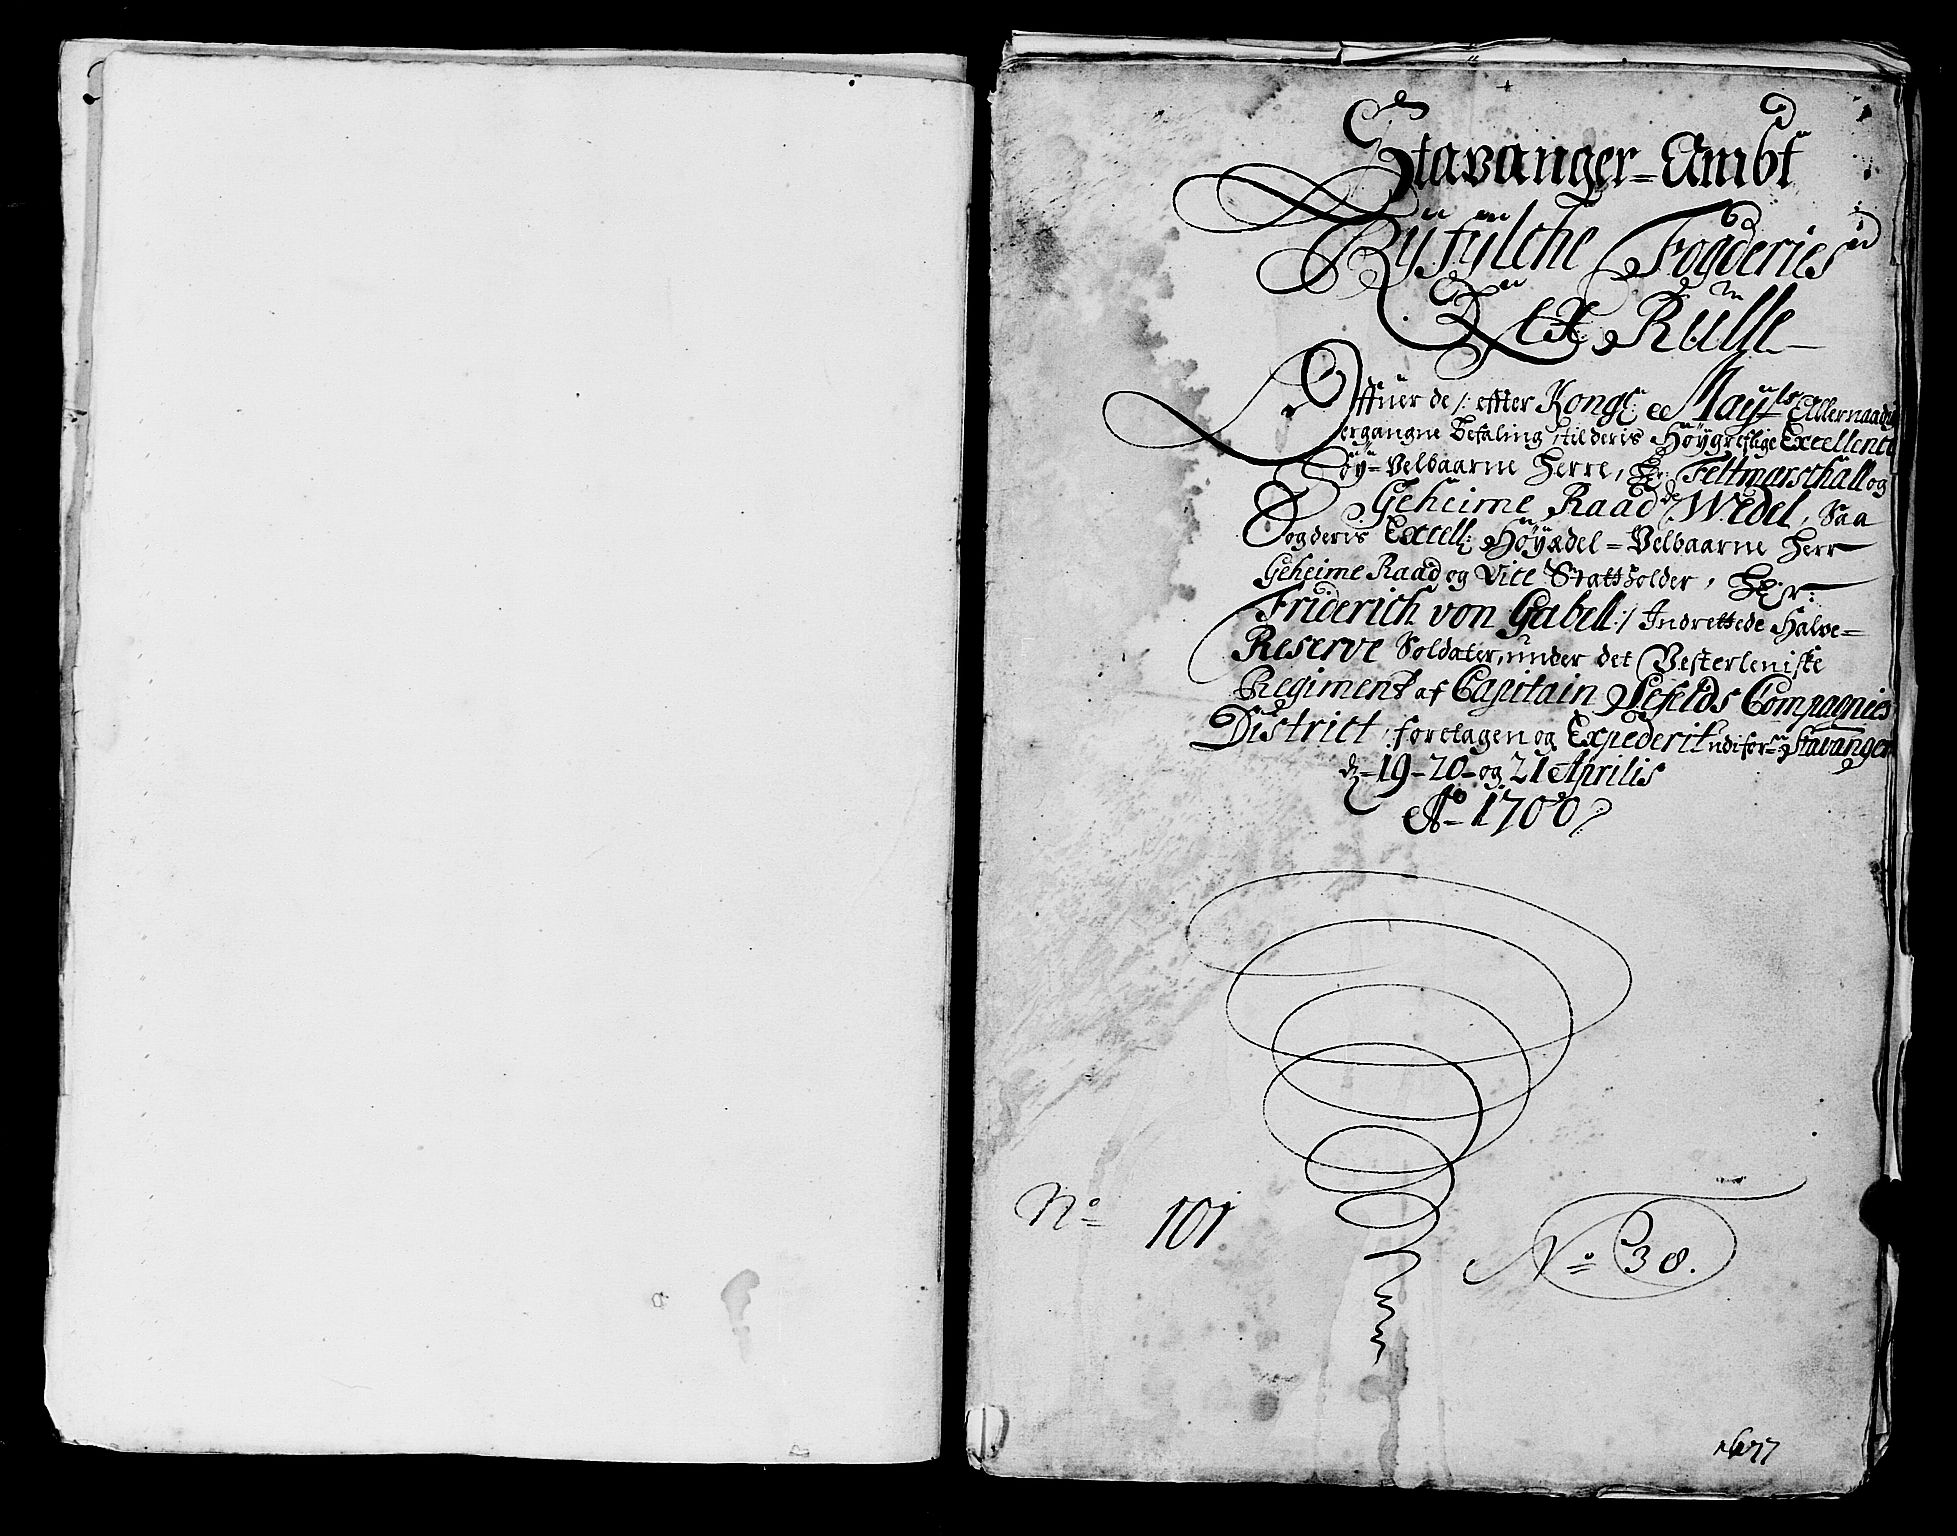 Stavanger-Ambt
Ryfylche Fogderies
Rulle
Offuer de /: effter Kongl: Mayts Allernaad
ergangne Befaling, til deris Høygreflige Excellence
Høy-Velbaarne Herre, Hr: Feltmarschall og
Geheime Raad de Wedel, Saa
og deris Excell: Høyædel-Velbaarne Herr
Geheime Raad og Vice Stattholder, Hr:
Friderich von Gabell :/ Indrettede Halve-
Reserve Soldater, under det Vesterleniske
Regiment af Capitain Sefelds Compagnies
District, foretagen og Expederit udi for Stavanger
d 19-20- og 21 Aprilis
Ao 1700
No 101
No 38.